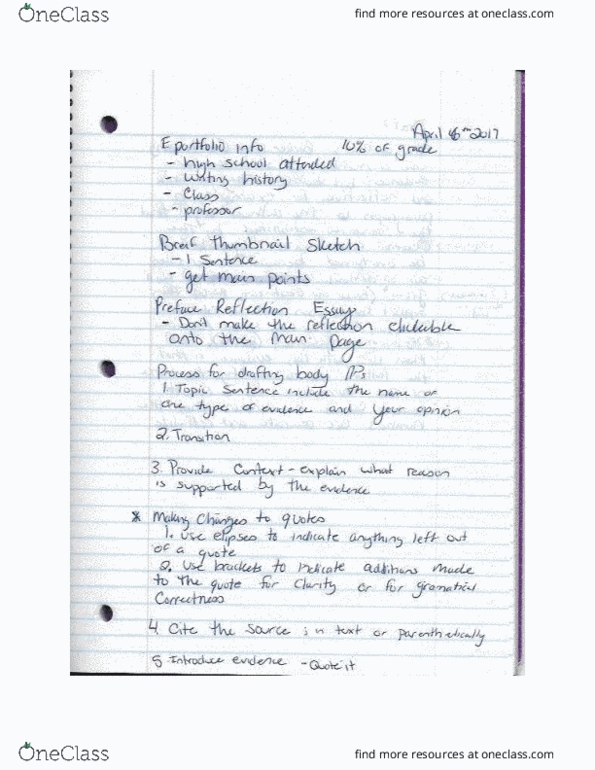 OneClass
find more resources at oneclass.com
April 6th 2017
Eportfolio info 10% of grade
- high school attended
- writing history
- Class
- professor
Breif thumbnail Sketch
- 1 Sentence
- get main points
Preface Reflection Essay
- Don't make the reflection clickable
onto the main page
Process for drafting body ¶s
1. Topic Sentence include the name or
the type of evidence and your opinion
2. Transition
3. Provide Context - explain what reason
is supported by the evidence
* Making Changes to quotes
1. Use elipses to indicate anything left out
of a quote
2. Use brackets to indicate additions made
to the quote for Clarity or for gramatical
Correctness
4. Cite the source in text or parenthetically
5. Introduce evidence - Quote it
OneClass
find more resources at oneclass.com